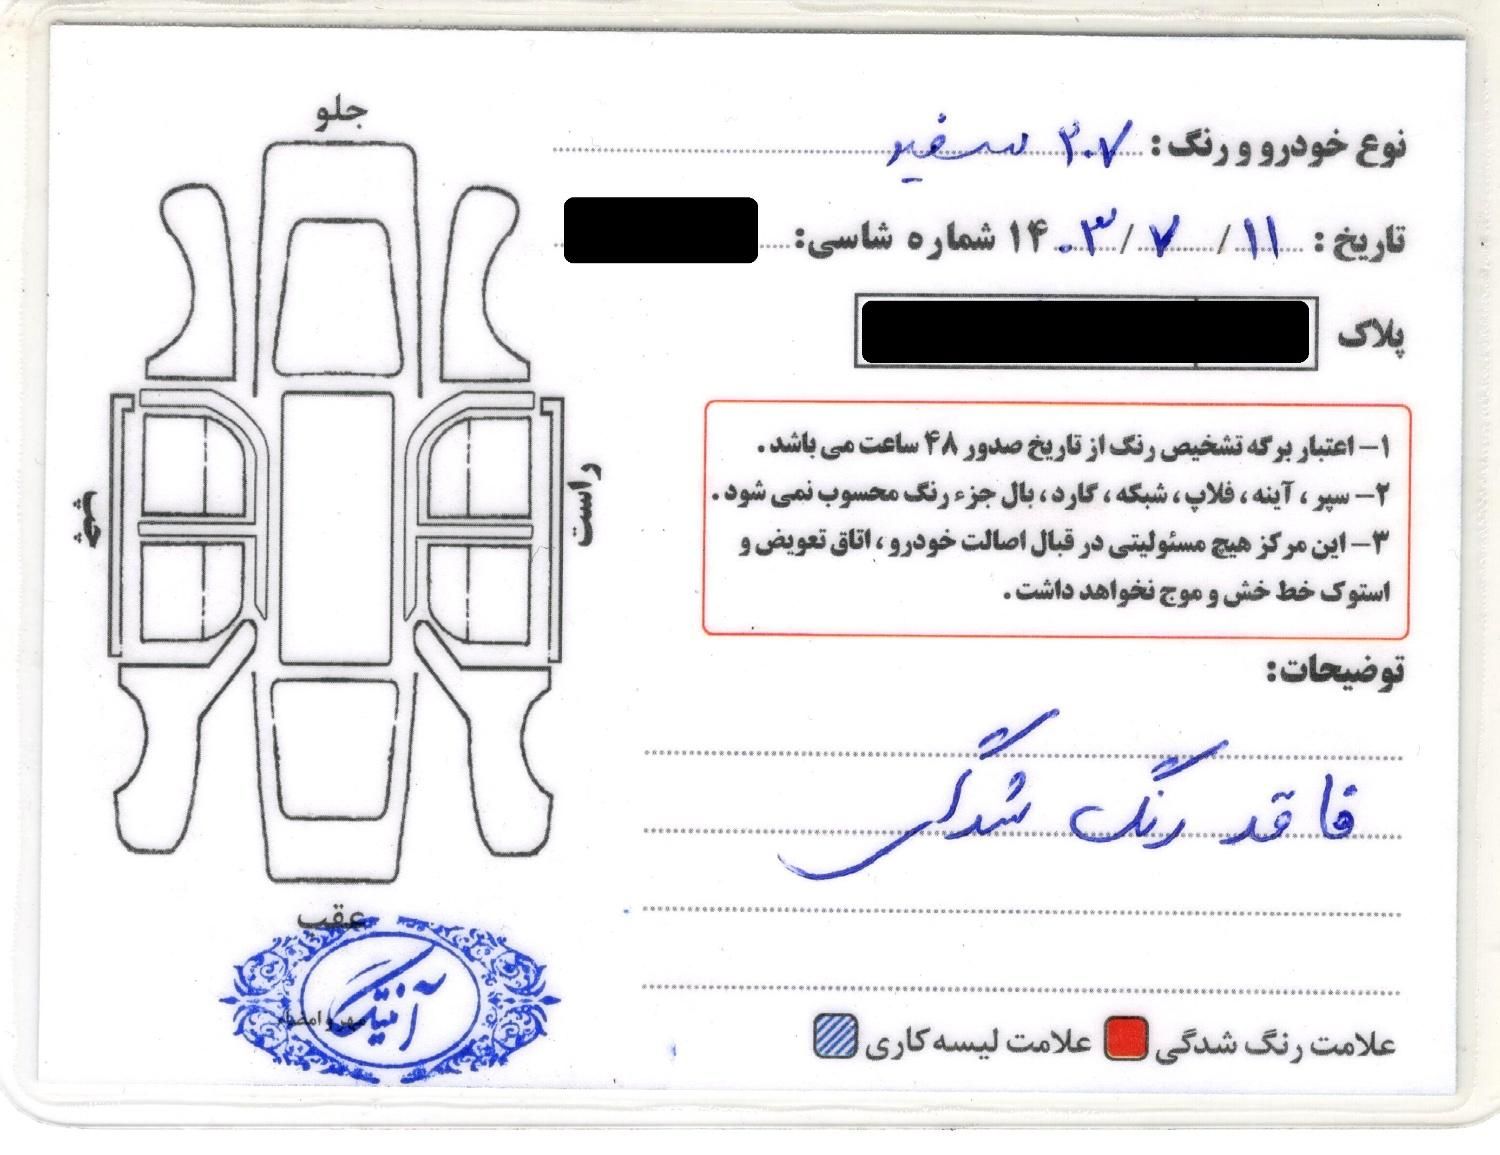 جلو
نوع خودرو و رنگ: ۲۰۷ سفید
تاریخ: ۱۱/ ۷/ ۱۴۰۳ شماره شاسی:
پلاک
۱- اعتبار برگه تشخیص رنگ از تاریخ صدور ۴۸ ساعت می باشد.
۲- سپر، آینه، فلاپ، شبکه، گارد، بال جزء رنگ محسوب نمی شود.
۳- این مرکز هیچ مسئولیتی در قبال اصالت خودرو، اتاق تعویض و
استوک خط خش و موج نخواهد داشت.
راست
چپ
توضیحات:
فاقد رنگ شدگی
عقب
مهر و امضاء
آنتیک
علامت رنگ شدگی
علامت لیسه کاری